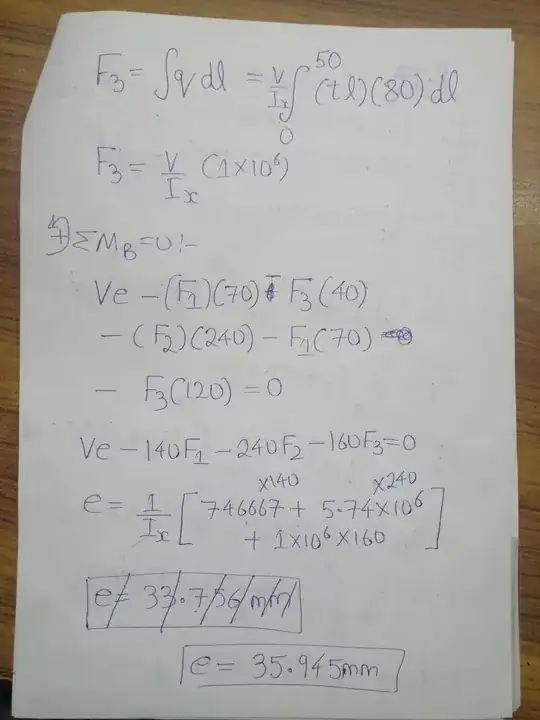 F₃ = ∫q dl = V/Iₓ ∫₀⁵⁰ (tl)(80) dl
F₃ = V/Iₓ (1×10⁶)
↶+ ΣM_B = 0 :-
Ve - (F₁)(70) - F₃(40)
- (F₂)(240) - F₁(70)
- F₃(120) = 0
Ve - 140F₁ - 240F₂ - 160F₃ = 0
×140 ×240
e = 1/Iₓ [ 746667 + 5.74×10⁶
+ 1×10⁶×160 ]
e = 33.756 mm
e = 35.945mm